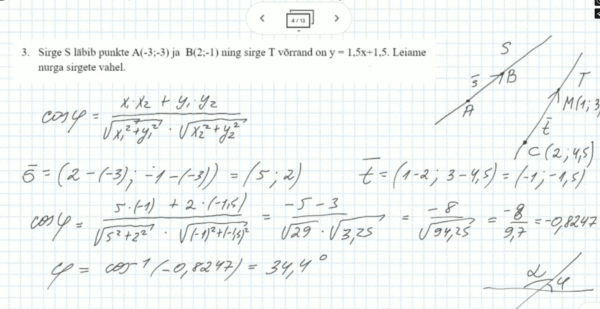 4 / 13
3. Sirge S läbib punkte A(-3;-3) ja B(2;-1) ning sirge T võrrand on y = 1,5x+1,5. Leiame
nurga sirgete vahel.
S
s̄
B
A
T
M(1; 3
t̄
C(2; 4,5)
cosφ = (x₁ x₂ + y₁ y₂) / (√(x₁²+y₁²) · √(x₂²+y₂²))
s̄ = (2-(-3); -1-(-3)) = (5; 2)
t̄ = (1-2; 3-4,5) = (-1; -1,5)
cosφ = (5·(-1) + 2·(-1,5)) / (√(5²+2²) · √((-1)²+(-1,5)²)) = (-5-3) / (√29 · √3,25) = -8 / √94,25 = -8 / 9,7 = -0,8247
φ = cos⁻¹(-0,8247) = 34,4°
α
φ